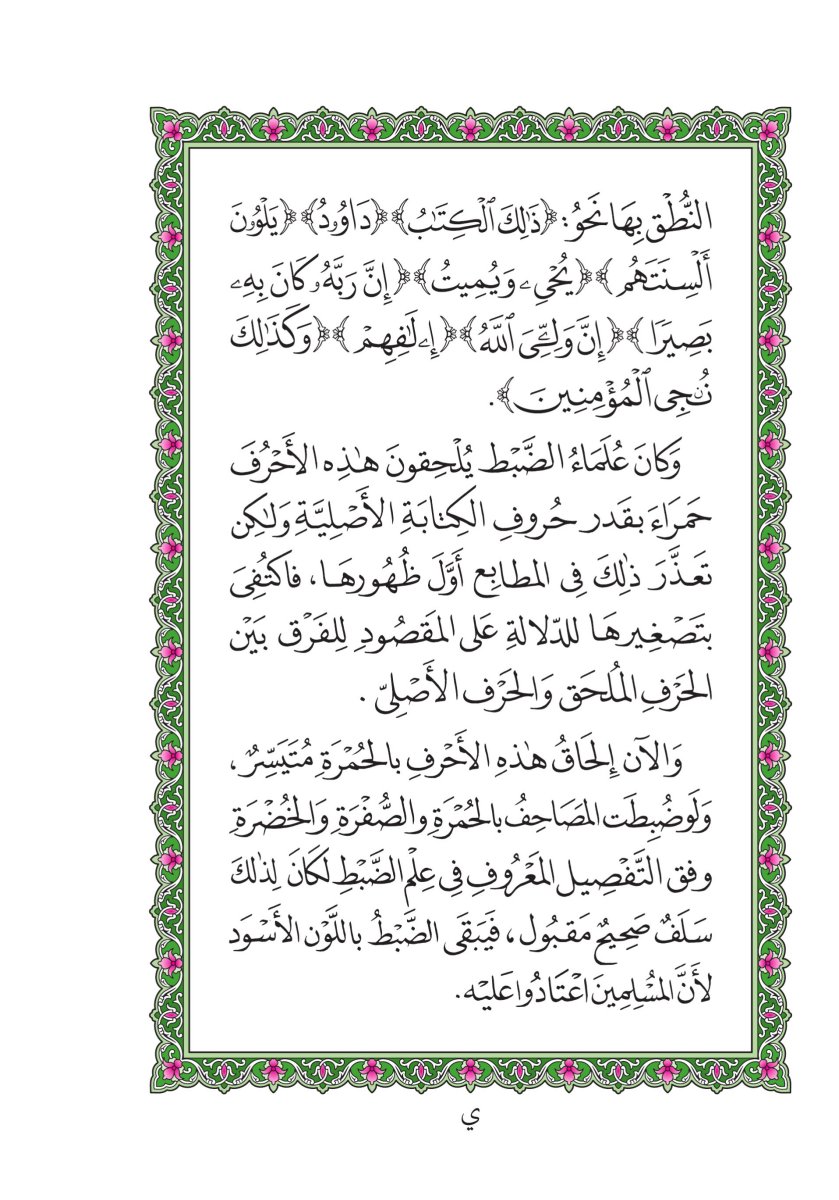 النُّطْق بِهَا نَحْوُ: ﴿ذَٰلِكَ ٱلْكِتَٰبُ﴾ ﴿دَاوُۥدُ﴾ ﴿يَلْوُۥنَ
أَلْسِنَتَهُم﴾ ﴿يُحْيِۦ وَيُمِيتُ﴾ ﴿إِنَّ رَبَّهُۥ كَانَ بِهِۦ
بَصِيرًا﴾ ﴿إِنَّ وَلِـِّۧيَ ٱللَّهُ﴾ ﴿إِۦلَٰفِهِمْ﴾ ﴿وَكَذَٰلِكَ
نُـۨجِي ٱلْمُؤْمِنِينَ﴾.
وَكَانَ عُلَمَاءُ الضَّبْطِ يُلْحِقونَ هَٰذِهِ الأَحْرُفَ
حَمَراءَ بقَدر حُروفِ الكِتابَةِ الأَصْلِيَّةِ وَلَٰكِن
تَعذَّرَ ذٰلِكَ فِي المطابِع أَوَّلَ ظُهُورهَا، فاكتُفِيَ
بتَصْغِيرهَا للدّلالةِ عَلى المَقصُودِ لِلفَرْق بَيْن
الحَرْفِ المُلحَق وَالحَرْف الأَصْلِيّ .
وَالآن إِلحَاقُ هٰذِهِ الأَحْرفِ بالحُمْرَةِ مُتَيَسِّرٌ،
وَلَوضُبِطَت المصَاحِفُ بالحُمْرَةِ والصُّفْرَةِ وَالخُضْرَةِ
وفق التَّفْصِيل المَعْرُوفِ فِي عِلْم الضَّبْطِ لكَانَ لِذٰلكَ
سَلَفٌ صَحِيحٌ مَقبُول، فَيَبقَى الضَّبْطُ باللَّوْن الأَسْوَد
لأَنَّ المُسْلِمِينَ اعْتَادُوا عَليْه.
ي